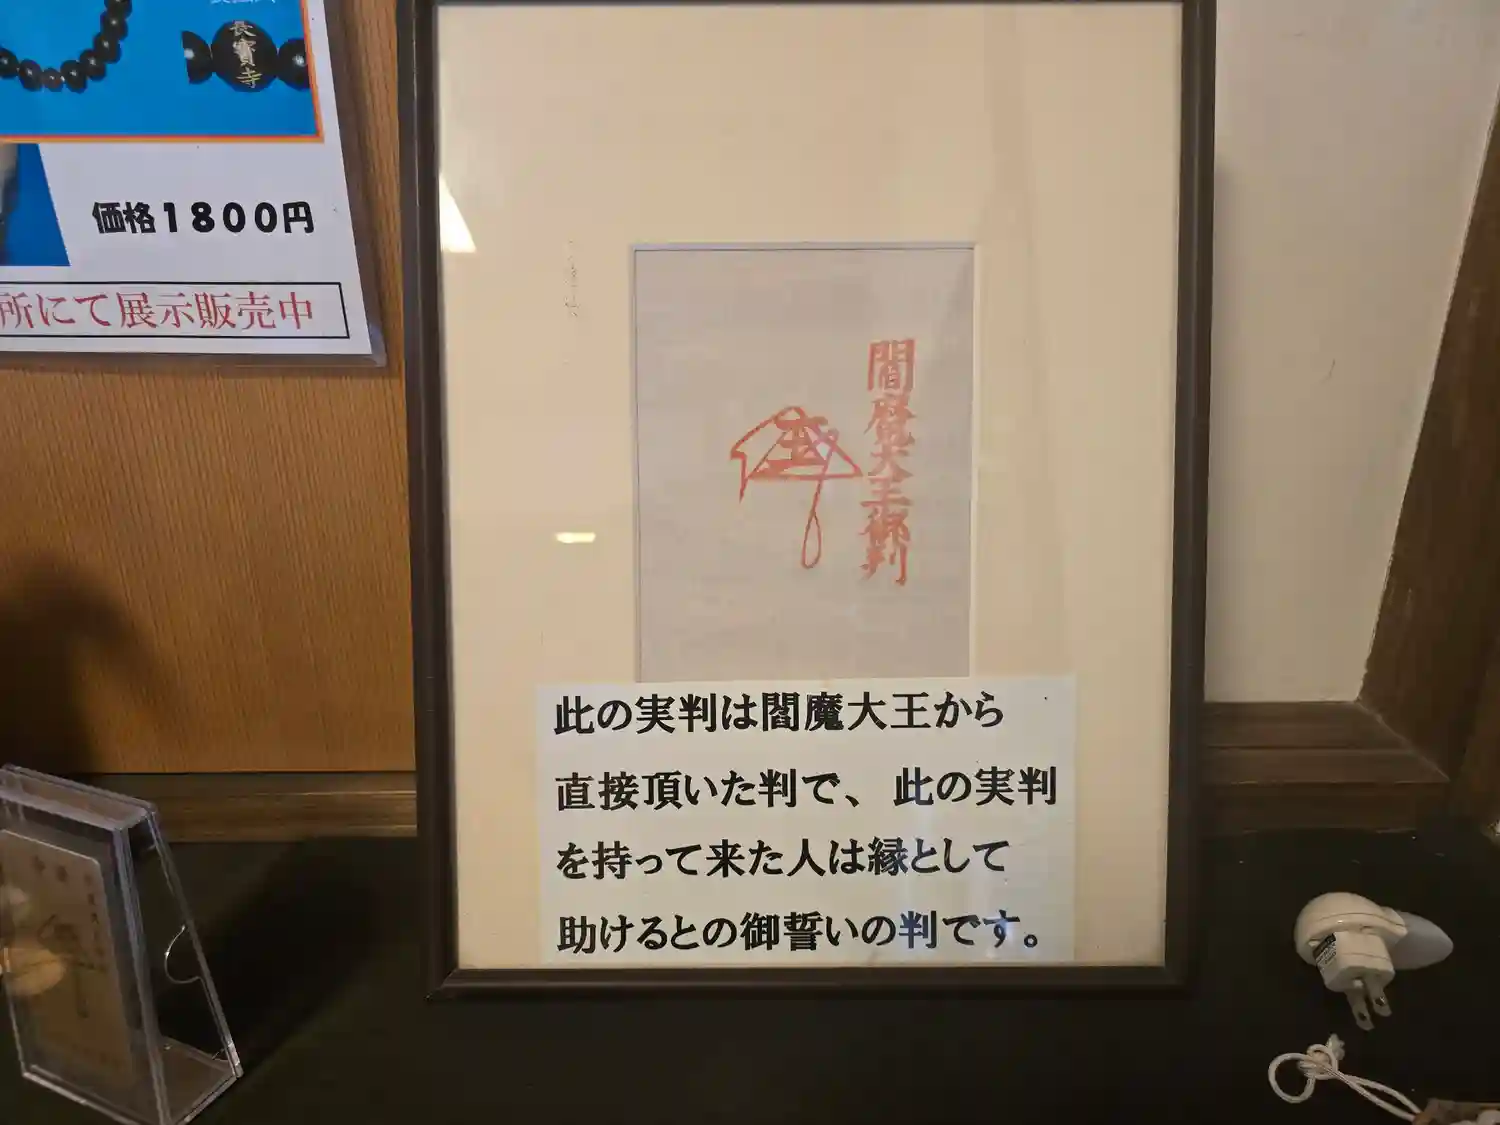 長寳寺
価格1800円
所にて展示販売中
閻魔大王御判
此の実判は閻魔大王から
直接頂いた判で、此の実判
を持って来た人は縁として
助けるとの御誓いの判です。